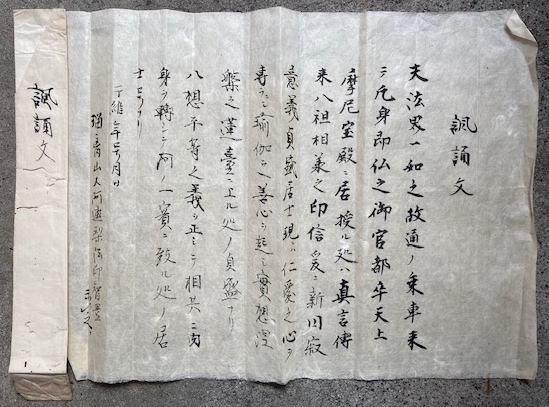 諷誦文
夫法界一如之故通ノ乗車来
テ凡身即仏之御官都卒天上
摩尼宝殿ニ居授ル処ハ真言傳
来八祖相承之印信爰ニ新旧寂
意義貞盛居士現ハ仁愛之心ヲ
専ラニシ瑜伽之善心ヲ起シ實想涅
槃之蓮臺ニ上ル処ノ貞盛ナリ
八想平等之義ヲ正シテ相共ニ肉
身ヲ轉シテ阿ノ一實ニ致ル処ノ居
士ナリ
于維年号月日
青山人阿闍梨法印智
諷誦文